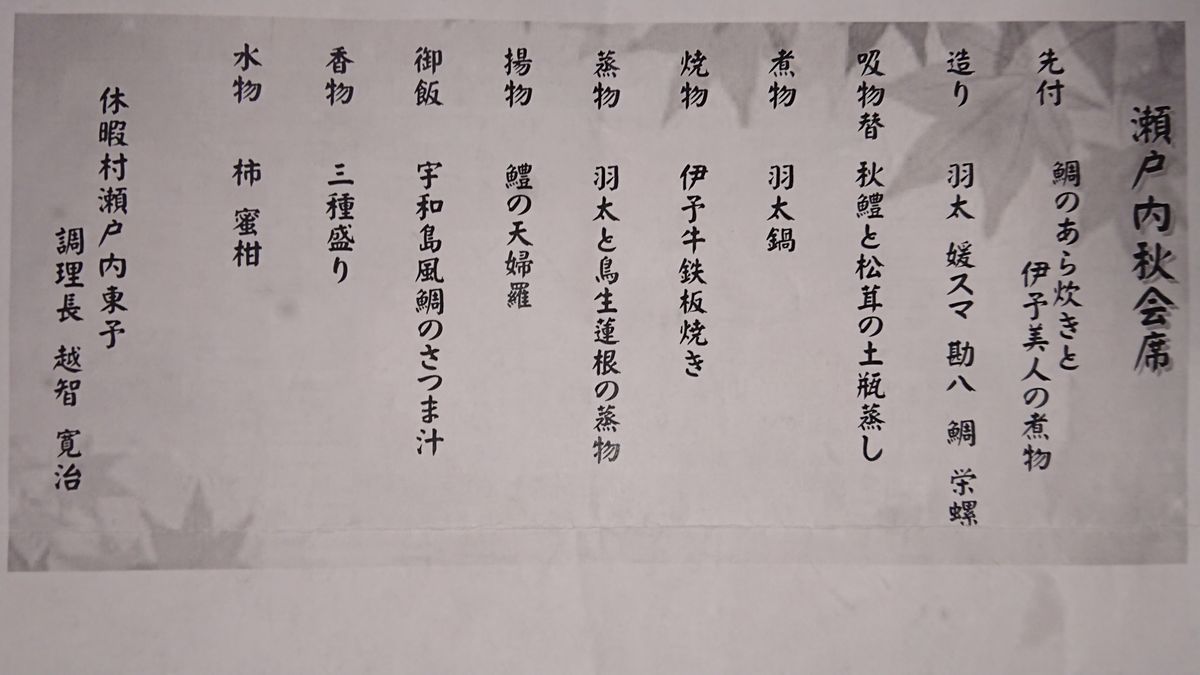 瀬戸内秋会席
先付 鯛のあら炊きと
伊予美人の煮物
造り 羽太 媛スマ 勘八 鯛 栄螺
吸物替 秋鱧と松茸の土瓶蒸し
煮物 羽太鍋
焼物 伊予牛鉄板焼き
蒸物 羽太と鳥生蓮根の蒸物
揚物 鱧の天婦羅
御飯 宇和島風鯛のさつま汁
香物 三種盛り
水物 柿 蜜柑
休暇村瀬戸内東予
調理長 越智 寛治